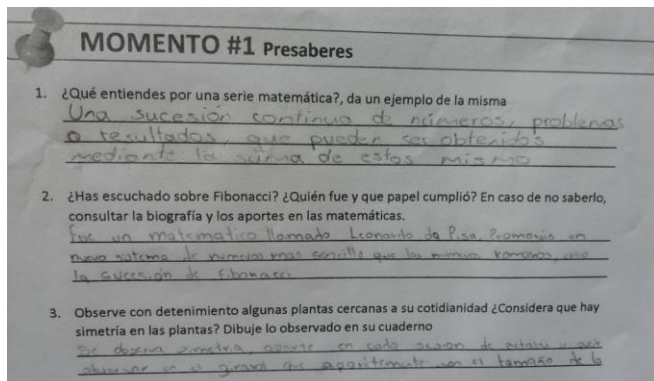 MOMENTO #1 Presaberes
1. ¿Qué entiendes por una serie matemática?, da un ejemplo de la misma
Una sucesión continua de números, problemas
o resultados, que pueden ser obtenidos
mediante la suma de estos mismo
2. ¿Has escuchado sobre Fibonacci? ¿Quién fue y que papel cumplió? En caso de no saberlo,
consultar la biografía y los aportes en las matemáticas.
fue un matematico llamado Leonardo de Pisa, Promovio un
nuevo sistema de numeros mas sencillo que los numeros romanos, creo
la sucesión de Fibonacci
3. Observe con detenimiento algunas plantas cercanas a su cotidianidad ¿Considera que hay
simetría en las plantas? Dibuje lo observado en su cuaderno
Se observa simetria, en cada de petalos
observar en el girasol que en el tamaño de lo